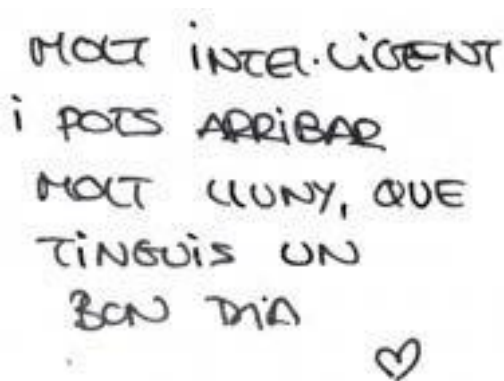 MOLT INTEL·LIGENT
i POTS ARRIBAR
MOLT LLUNY, QUE
TINGUIS UN
BON DIA
♡